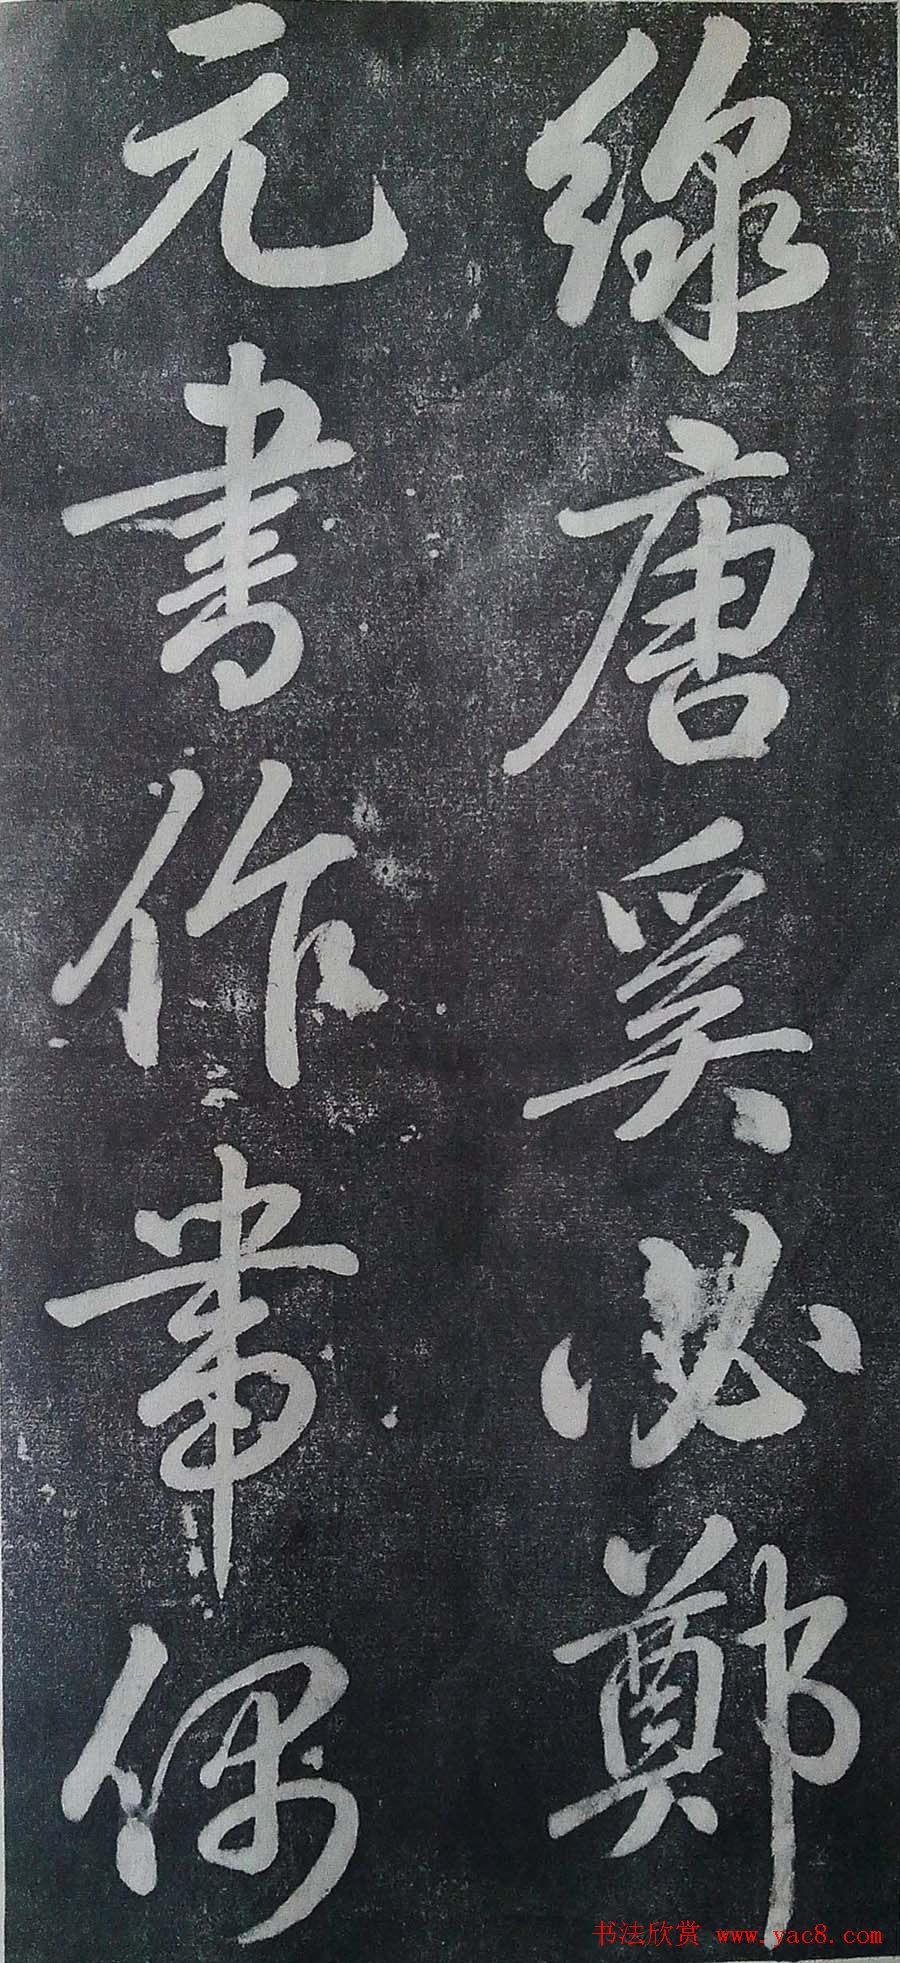 綠唐奚必鄭
元書作帶偶
书法欣赏 www.yac8.com